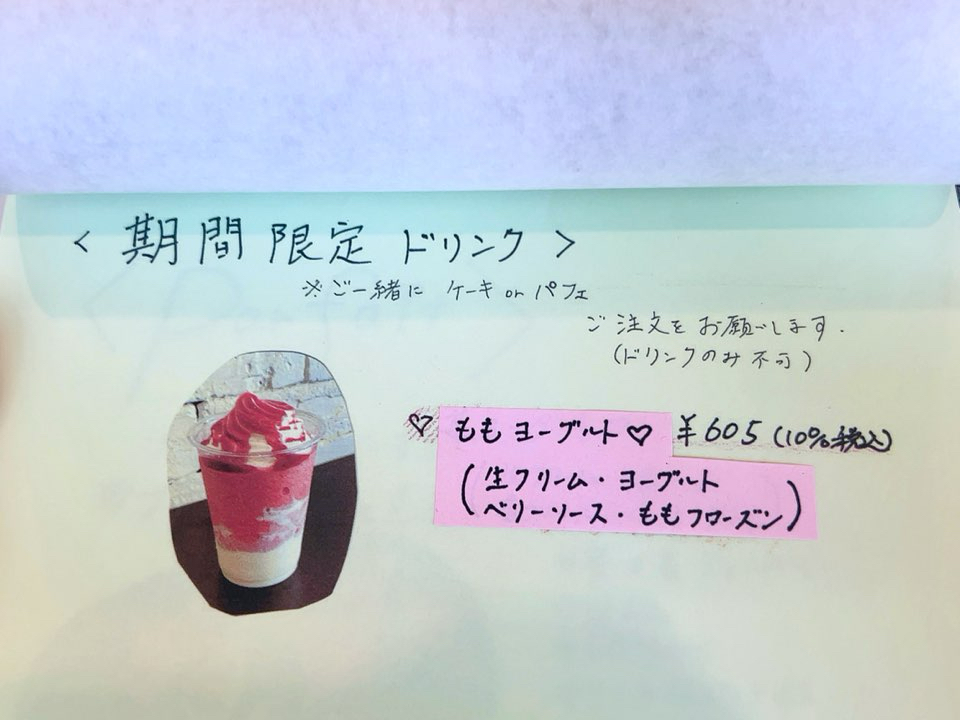 < 期間限定 ドリンク >
※ご一緒に ケーキ or パフェ
ご注文をお願いします.
(ドリンクのみ不可)
♡ ももヨーグルト♡ ¥605 (10%税込)
(生クリーム・ヨーグルト
ベリーソース・ももフローズン)